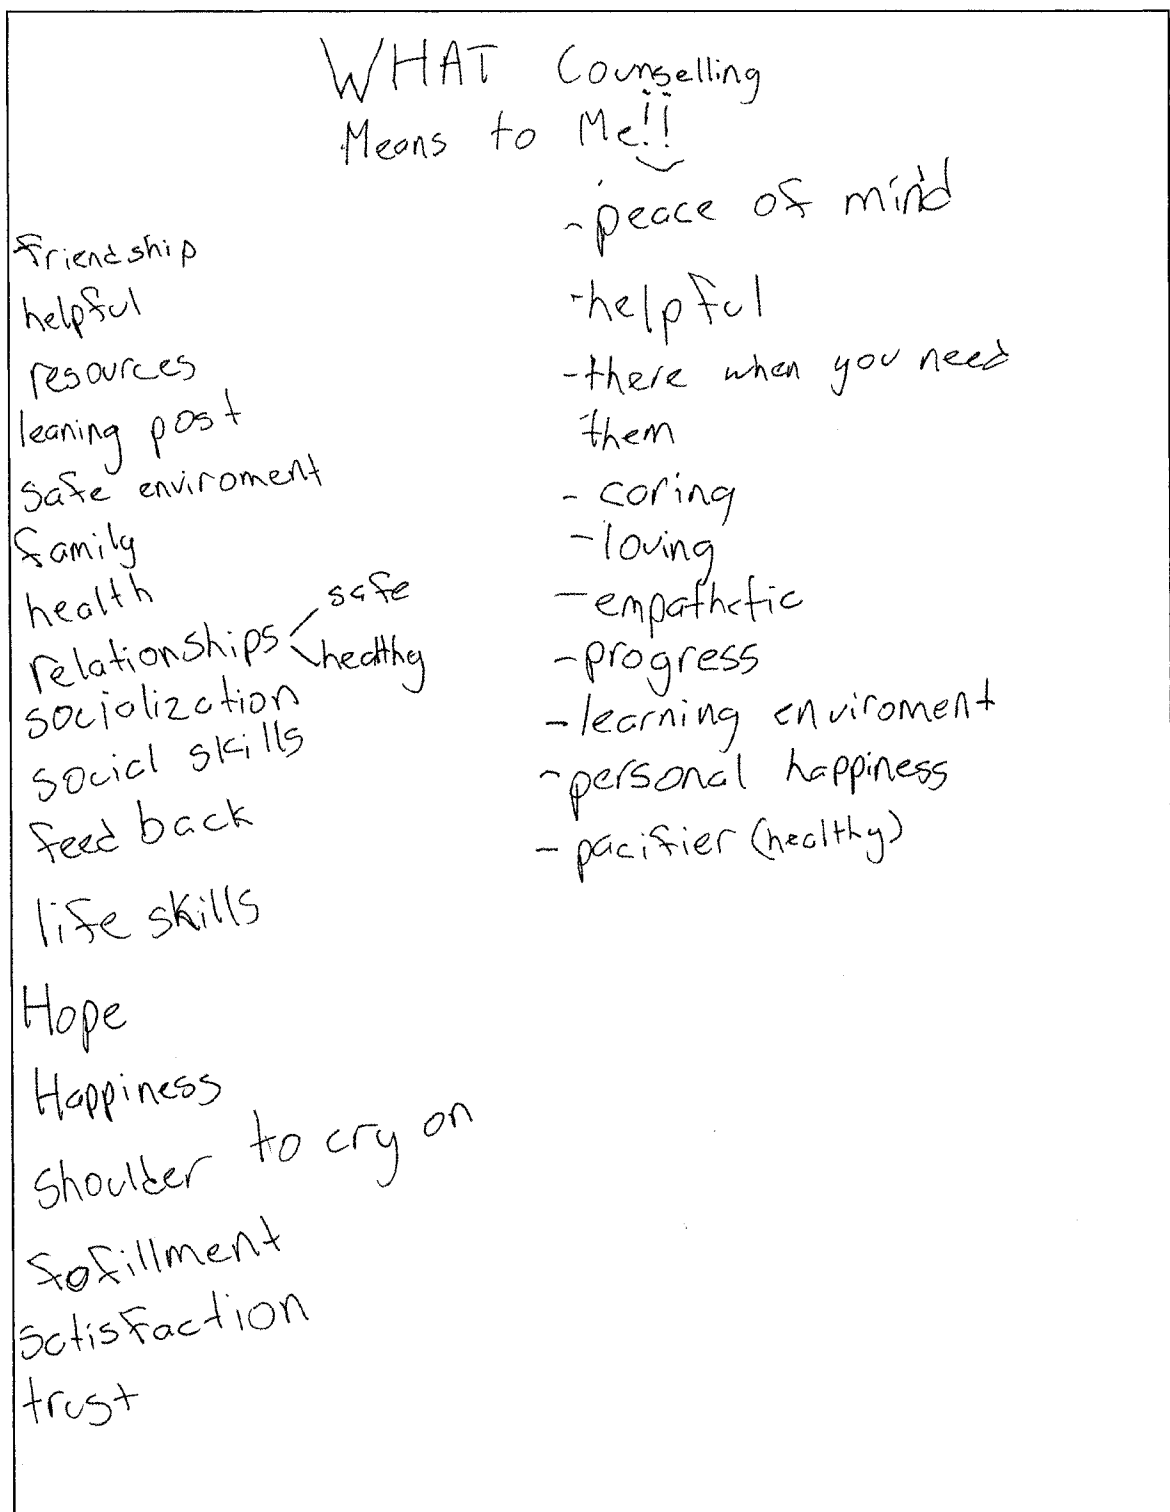 WHAT Counselling
Means to Me!!
friendship
helpful
resources
leaning post
safe enviroment
family
health
relationships
safe
healthy
socialization
social skills
feed back
life skills
Hope
Happiness
Shoulder to cry on
fofillment
satisfaction
trust
- peace of mind
- helpful
- there when you need
them
- caring
- loving
- empathetic
- progress
- learning enviroment
- personal happiness
- pacifier (healthy)